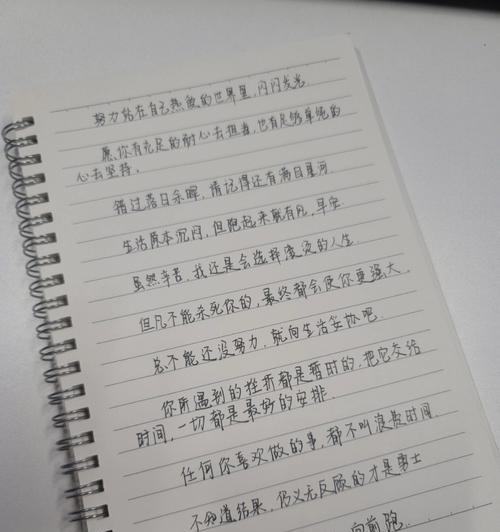 努力活在自己热敵的世界里，闪闪发光
愿你有充足的耐心去担当，也有足够单纯的
心去坚持。
错过落日余晖，请记得还有满目星河
生活原本沉闷，但跑起来就有风，早安
虽然辛苦，我还是会选择滚烫的人生
但凡不能杀死你的，最终都会使你更强大。
总不能还没努力，就向生活妥协吧
你所遇到的挫折都是暂时的，把它交给
时间，一切都是最好的安排
任何你喜欢做的事，都不叫浪费时间
不知道结果，仍义无反顾的才是勇士
向前跑